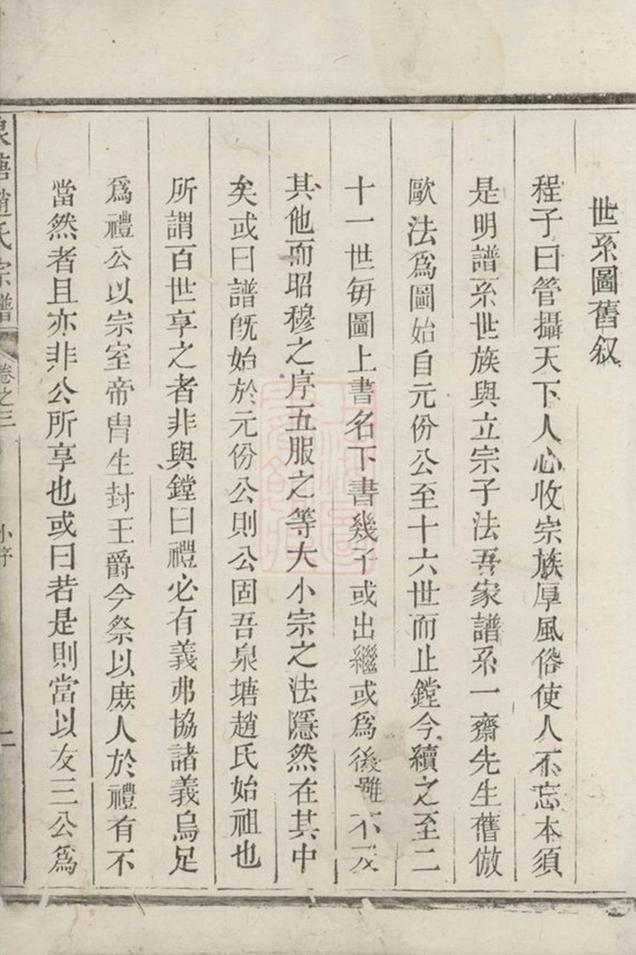 世系圖舊叙
程子曰管攝天下人心收宗族厚風俗使人不忘本須
是明譜系世族與立宗子法吾家譜系一齋先生舊倣
歐法爲圖始自元份公至十六世而止鏜今續之至二
十一世每圖上書名下書幾子或出繼或爲後雖不及
其他而昭穆之序五服之等大小宗之法隱然在其中
矣或曰譜旣始於元份公則公固吾泉塘趙氏始祖也
所謂百世享之者非與鏜曰禮必有義弗協諸義烏足
爲禮公以宗室帝胄生封王爵今祭以庶人於禮有不
當然者且亦非公所享也或曰若是則當以友三公爲
泉塘趙氏宗譜 卷之三 小序 二